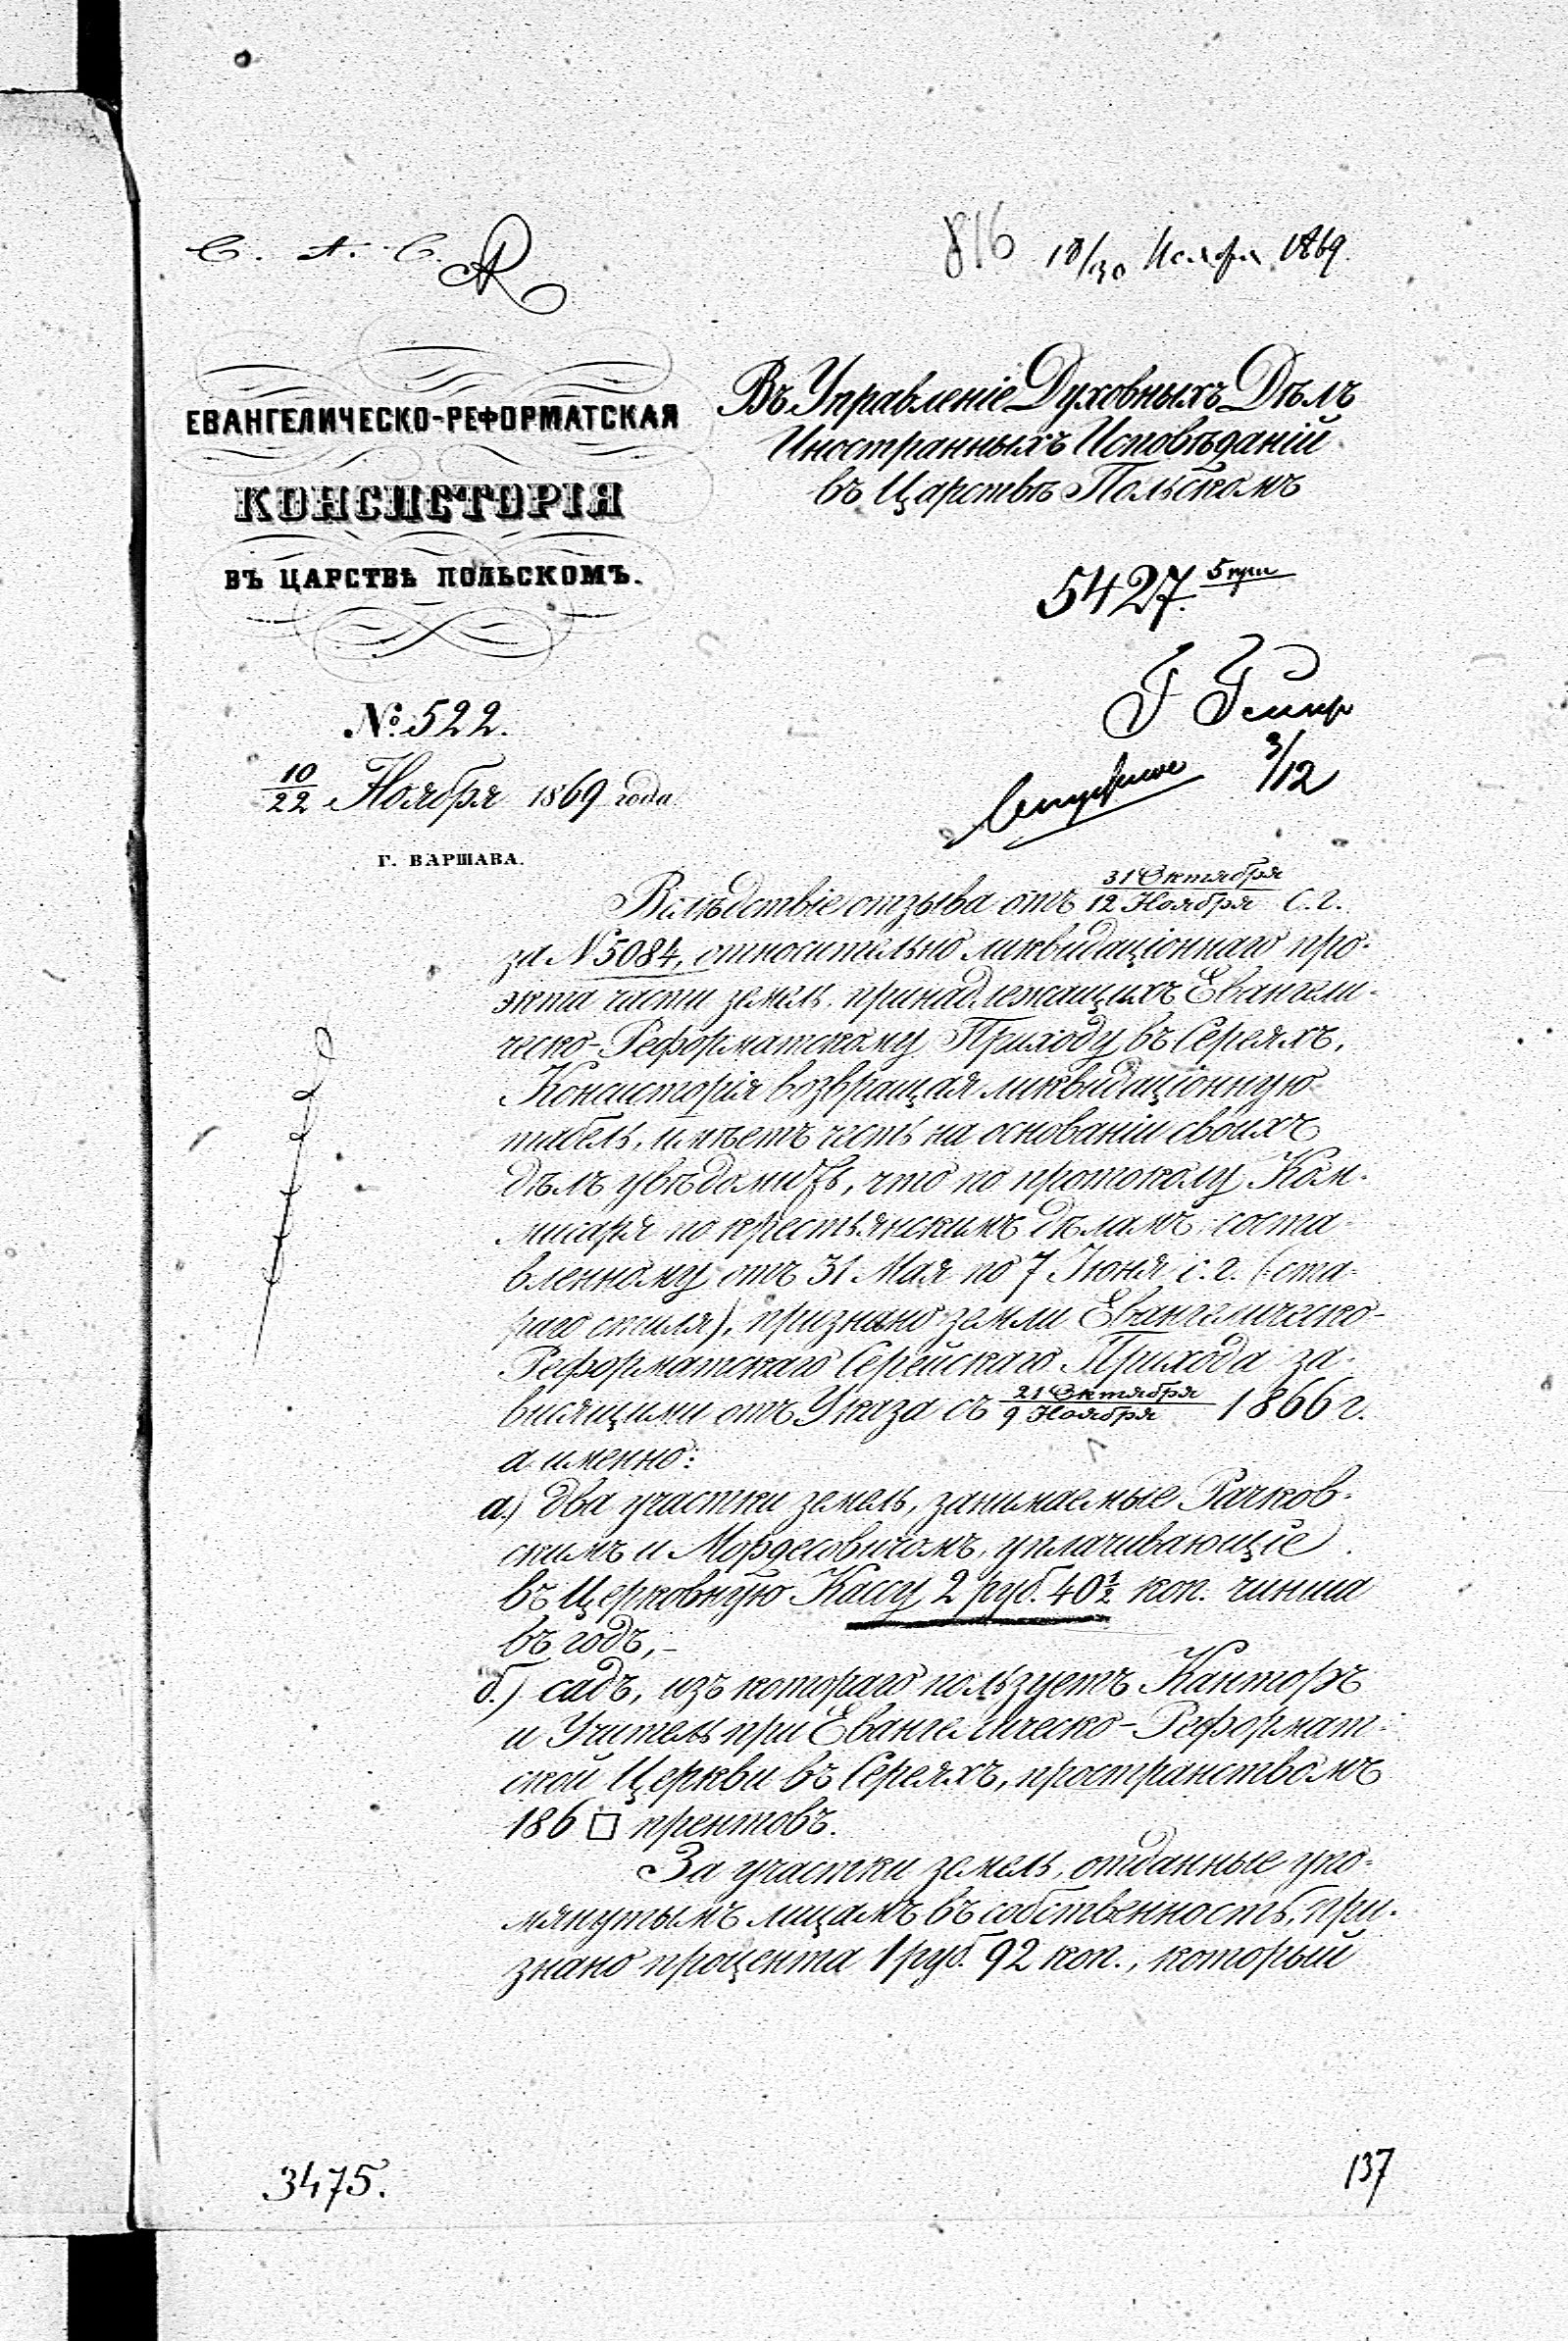 С. А. С.
816 18/30 Ноября 1869.
ЕВАНГЕЛИЧЕСКО-РЕФОРМАТСКАЯ
КОНСИСТОРІЯ
ВЪ ЦАРСТВѢ ПОЛЬСКОМЪ.
Въ Управленіе Духовныхъ Дѣлъ
Иностранныхъ Исповѣданій
въ Царствѣ Польскомъ
5427. 5 при
Г
3/12
№ 522.
10/22 Ноября 1869 года
Г. ВАРШАВА.
Вслѣдствіе отзыва отъ 31 Октября/12 Ноября с. г.
за N 5084, относительно ликвидаціоннаго про-
экта части земель принадлежащихъ Евангели-
ческо-Реформатскому Приходу въ Сереяхъ,
Консисторія возвращая ликвидаціонную
табель, имѣетъ честь на основаніи своихъ
дѣлъ увѣдомить, что по протоколу Ком-
мисаря по крестьянскимъ дѣламъ, соста-
вленному отъ 31 Мая по 7 Іюня с. г. (ста-
раго стиля), признано земли Евангелическо-
Реформатскаго Серейскаго Прихода за-
висящими отъ Указа съ 21 Октября/9 Ноября 1866 г.
а именно:
а.) два участки земель, занимаемые Рачков-
скимъ и Мордасовичомъ, уплачивающіе
въ Церковную Кассу 2 руб. 40½ коп. чинша
въ годъ,-
б.) садъ, изъ котораго пользуетъ Канторъ
и Учитель при Евангелическо-Реформат-
ской Церкви въ Сереяхъ, пространствомъ
186 □ прентовъ.
За участки земель, отданные упо-
мянутымъ лицамъ въ собственность, при-
знано процента 1 руб. 92 коп., который
3475.
137